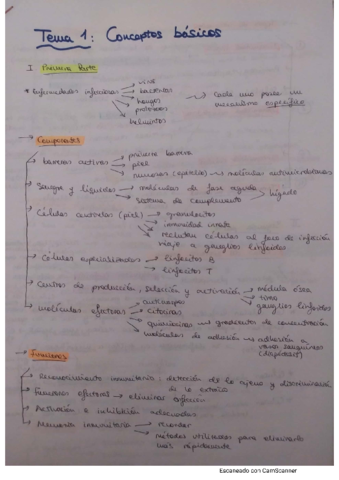 Tema 1: Conceptos básicos
I Primera Parte
virus
* Enfermedades infecciosas → bacterias → Cada uno posee un
hongos mecanismo específico
protozoos
helmintos
→ Componentes
→ barreras activas → primera barrera
→ piel
→ mucosas (epitelios) → moléculas antimicrobianas
→ Sangre y líquidos → moléculas de fase aguda > hígado
→ Sistema de complemento
→ Células centinelas (piel) → granulocitos
→ inmunidad innata
→ reclutan células al foco de infección
viaje a ganglios linfoides
→ Células especializadas → linfocitos B
→ linfocitos T
→ Centros de producción, selección y activación → médula ósea
→ timo
→ ganglios linfoides
→ moléculas efectoras → anticuerpos
→ citocinas
→ quimiocinas → gradiente de concentración
→ moléculas de adhesión → adhesión a
vasos sanguíneos
→ Funciones
→ Reconocimiento inmunitario: detección de lo ajeno y discriminación
de lo extraño
→ Funciones efectoras → eliminar
→ Activación e inhibición adecuadas
→ Memoria inmunitaria → recordar
→ métodos utilizados para eliminarlo
más rápidamente
Escaneado con CamScanner